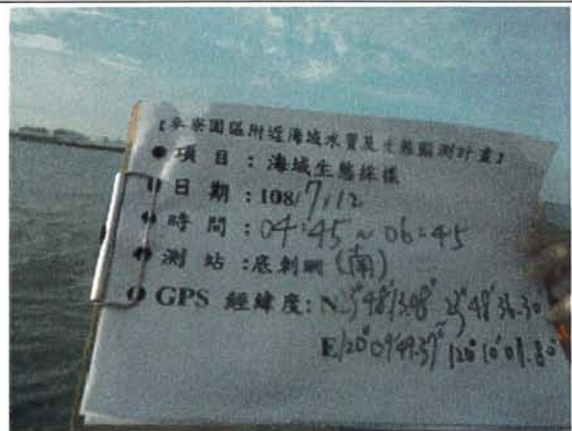 【麥寮園區附近海域水質及生態監測計畫】
● 項 目：海域生態採樣
● 日 期：108/7/12
● 時 間：04:45 ~ 06:45
● 測 站：底刺網 (南)
● GPS 經緯度：N 23°48'13.98" 23°48'36.30"
E 120°09'49.57" 120°10'01.80"